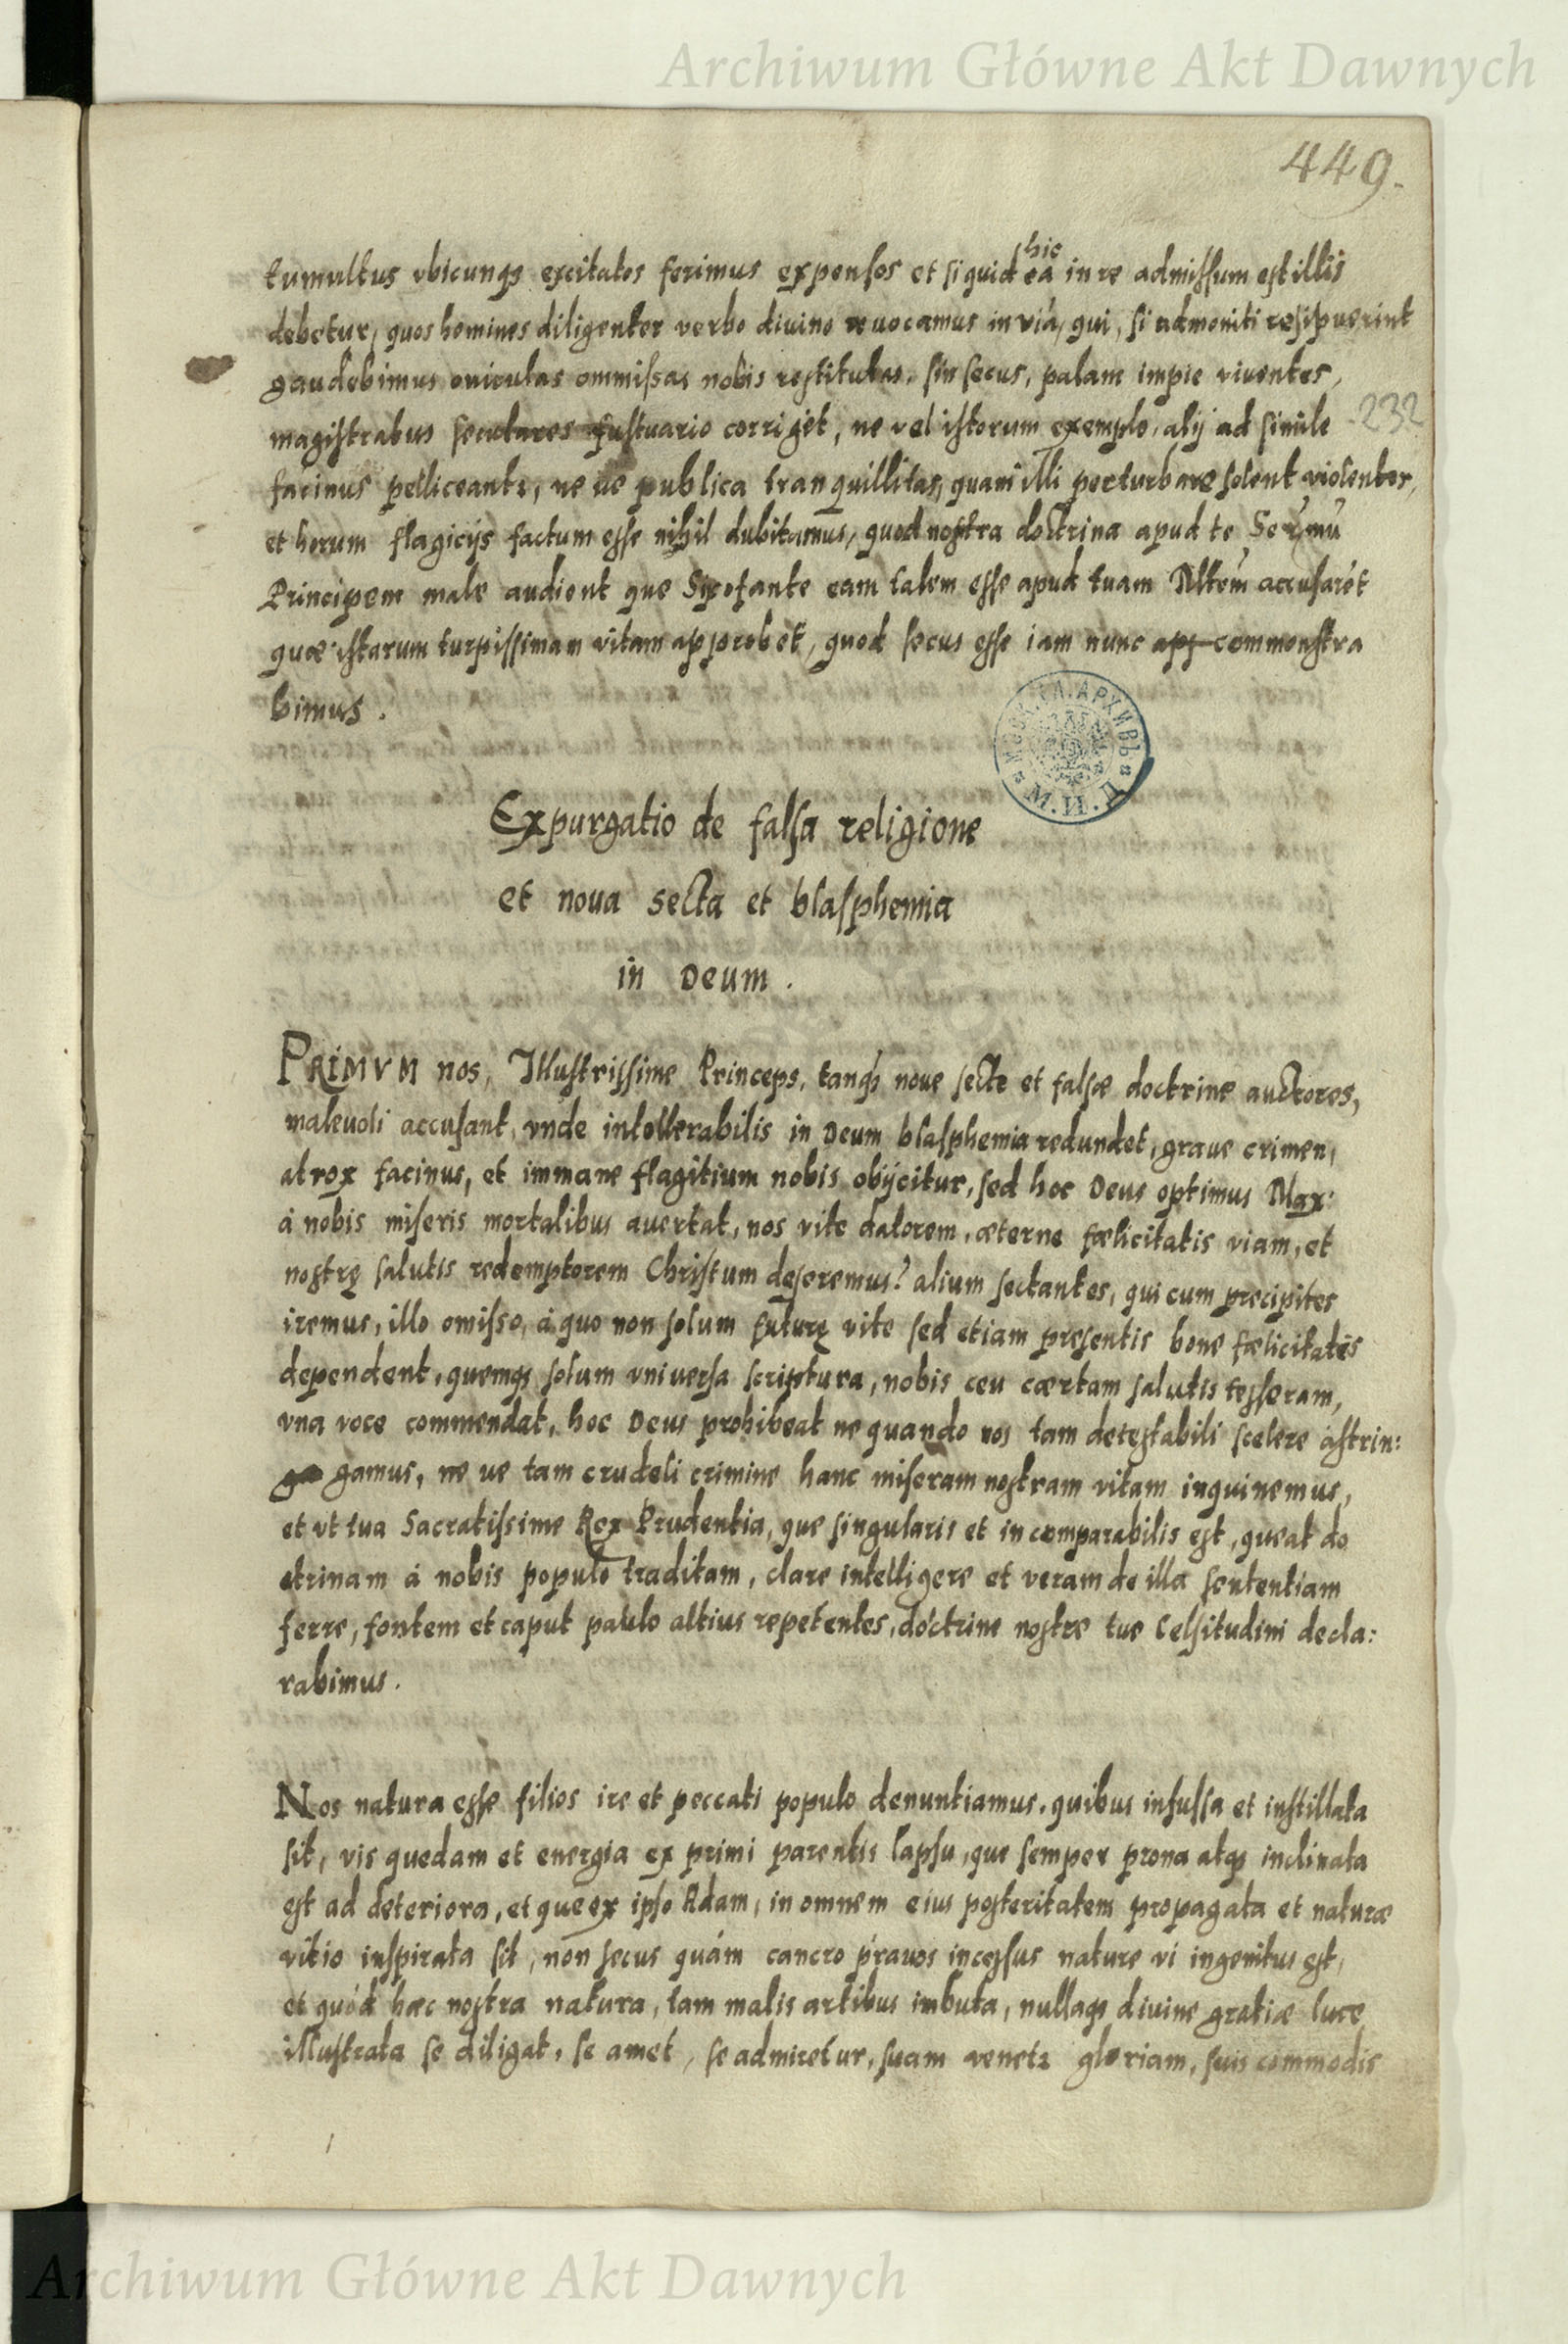 Archiwum Główne Akt Dawnych
449.
tumultus vbicunqȝ excitatos ferimus expensos et siquid hic ea in re admissum est illis
debetur, quos homines diligenter verbo diuino reuocamus in viã, qui, si admoniti resipuerint
gaudebimus ouiculas ommissas nobis restitutas, sin secus, palam impie viuentes,
232
magistratus seculares fustuario corriget, ne vel istorum exemplo, alij ad simile
facinus pelliceantr, ne ue publica tranquillitas, quam illi perturbare solent violenter,
et horum flagicijs factum esse nihil dubitamus, quod nostra doctrina apud te Serĩmũ
Principem male audient que Sicofante eam talem esse apud tuam Altem̃ accusarẽt
quæ istarum turpissimam vitam approbet, quod secus esse iam nunc commonstra
bimus.
МОСК. ГЛ. АРХИВЪ М.И.Д.
Expurgatio de falsa religione
et noua secta et blasphemia
in Deum.
PRIMVM nos, Illustrissime Princeps, tanqȝ noue secte et falsæ doctrine auctores,
maleuoli accusant, vnde intollerabilis in Deum blasphemia redundet, graue crimen,
atrox facinus, et immane flagitium nobis obijcitur, sed hoc Deus optimus Max:
á nobis miseris mortalibus auertat, nos vite datorem, æterne fœlicitatis viam, et
nostrę salutis redemptorem Christum deseremus? alium sectantes, qui cum precipites
iremus, illo omisso, á quo non solum futurę vite sed etiam presentis bone fœlicitates
dependent, quemqȝ solum vniuersa scriptura, nobis ceu cœrtam salutis tesseram,
vna voce commendat, hoc Deus prohibeat ne quando nos tam detestabili scelere astrin:
ga gamus, ne ue tam crudeli crimine hanc miseram nostram vitam inquinemus,
et vt tua Sacratissime Rex Prudentia, que singularis et incomparabilis est, queat do
ctrinam á nobis populo traditam, clare intelligere et veram de illa sententiam
ferre, fontem et caput paulo altius repetentes, doctrine nostre tue Celsitudini decla:
rabimus.
Nos natura esse filios ire et peccati populo denuntiamus, quibus infussa et instillata
sit, vis quedam et energia ex primi parentis lapsu, que semper prona atqȝ inclinata
est ad deteriora, et que ex ipso Adam, in omnem eius posteritatem propagata et naturæ
vitio inspirata sit, non secus quám cancro prauos incessus nature vi ingenitus est,
et quód hæc nostra natura, tam malis artibus imbuta, nullaqȝ diuine gratiæ luce
illustrata se diligat, se amet, se admiretur, suam venetr gloriam, suis commodis
Archiwum Główne Akt Dawnych